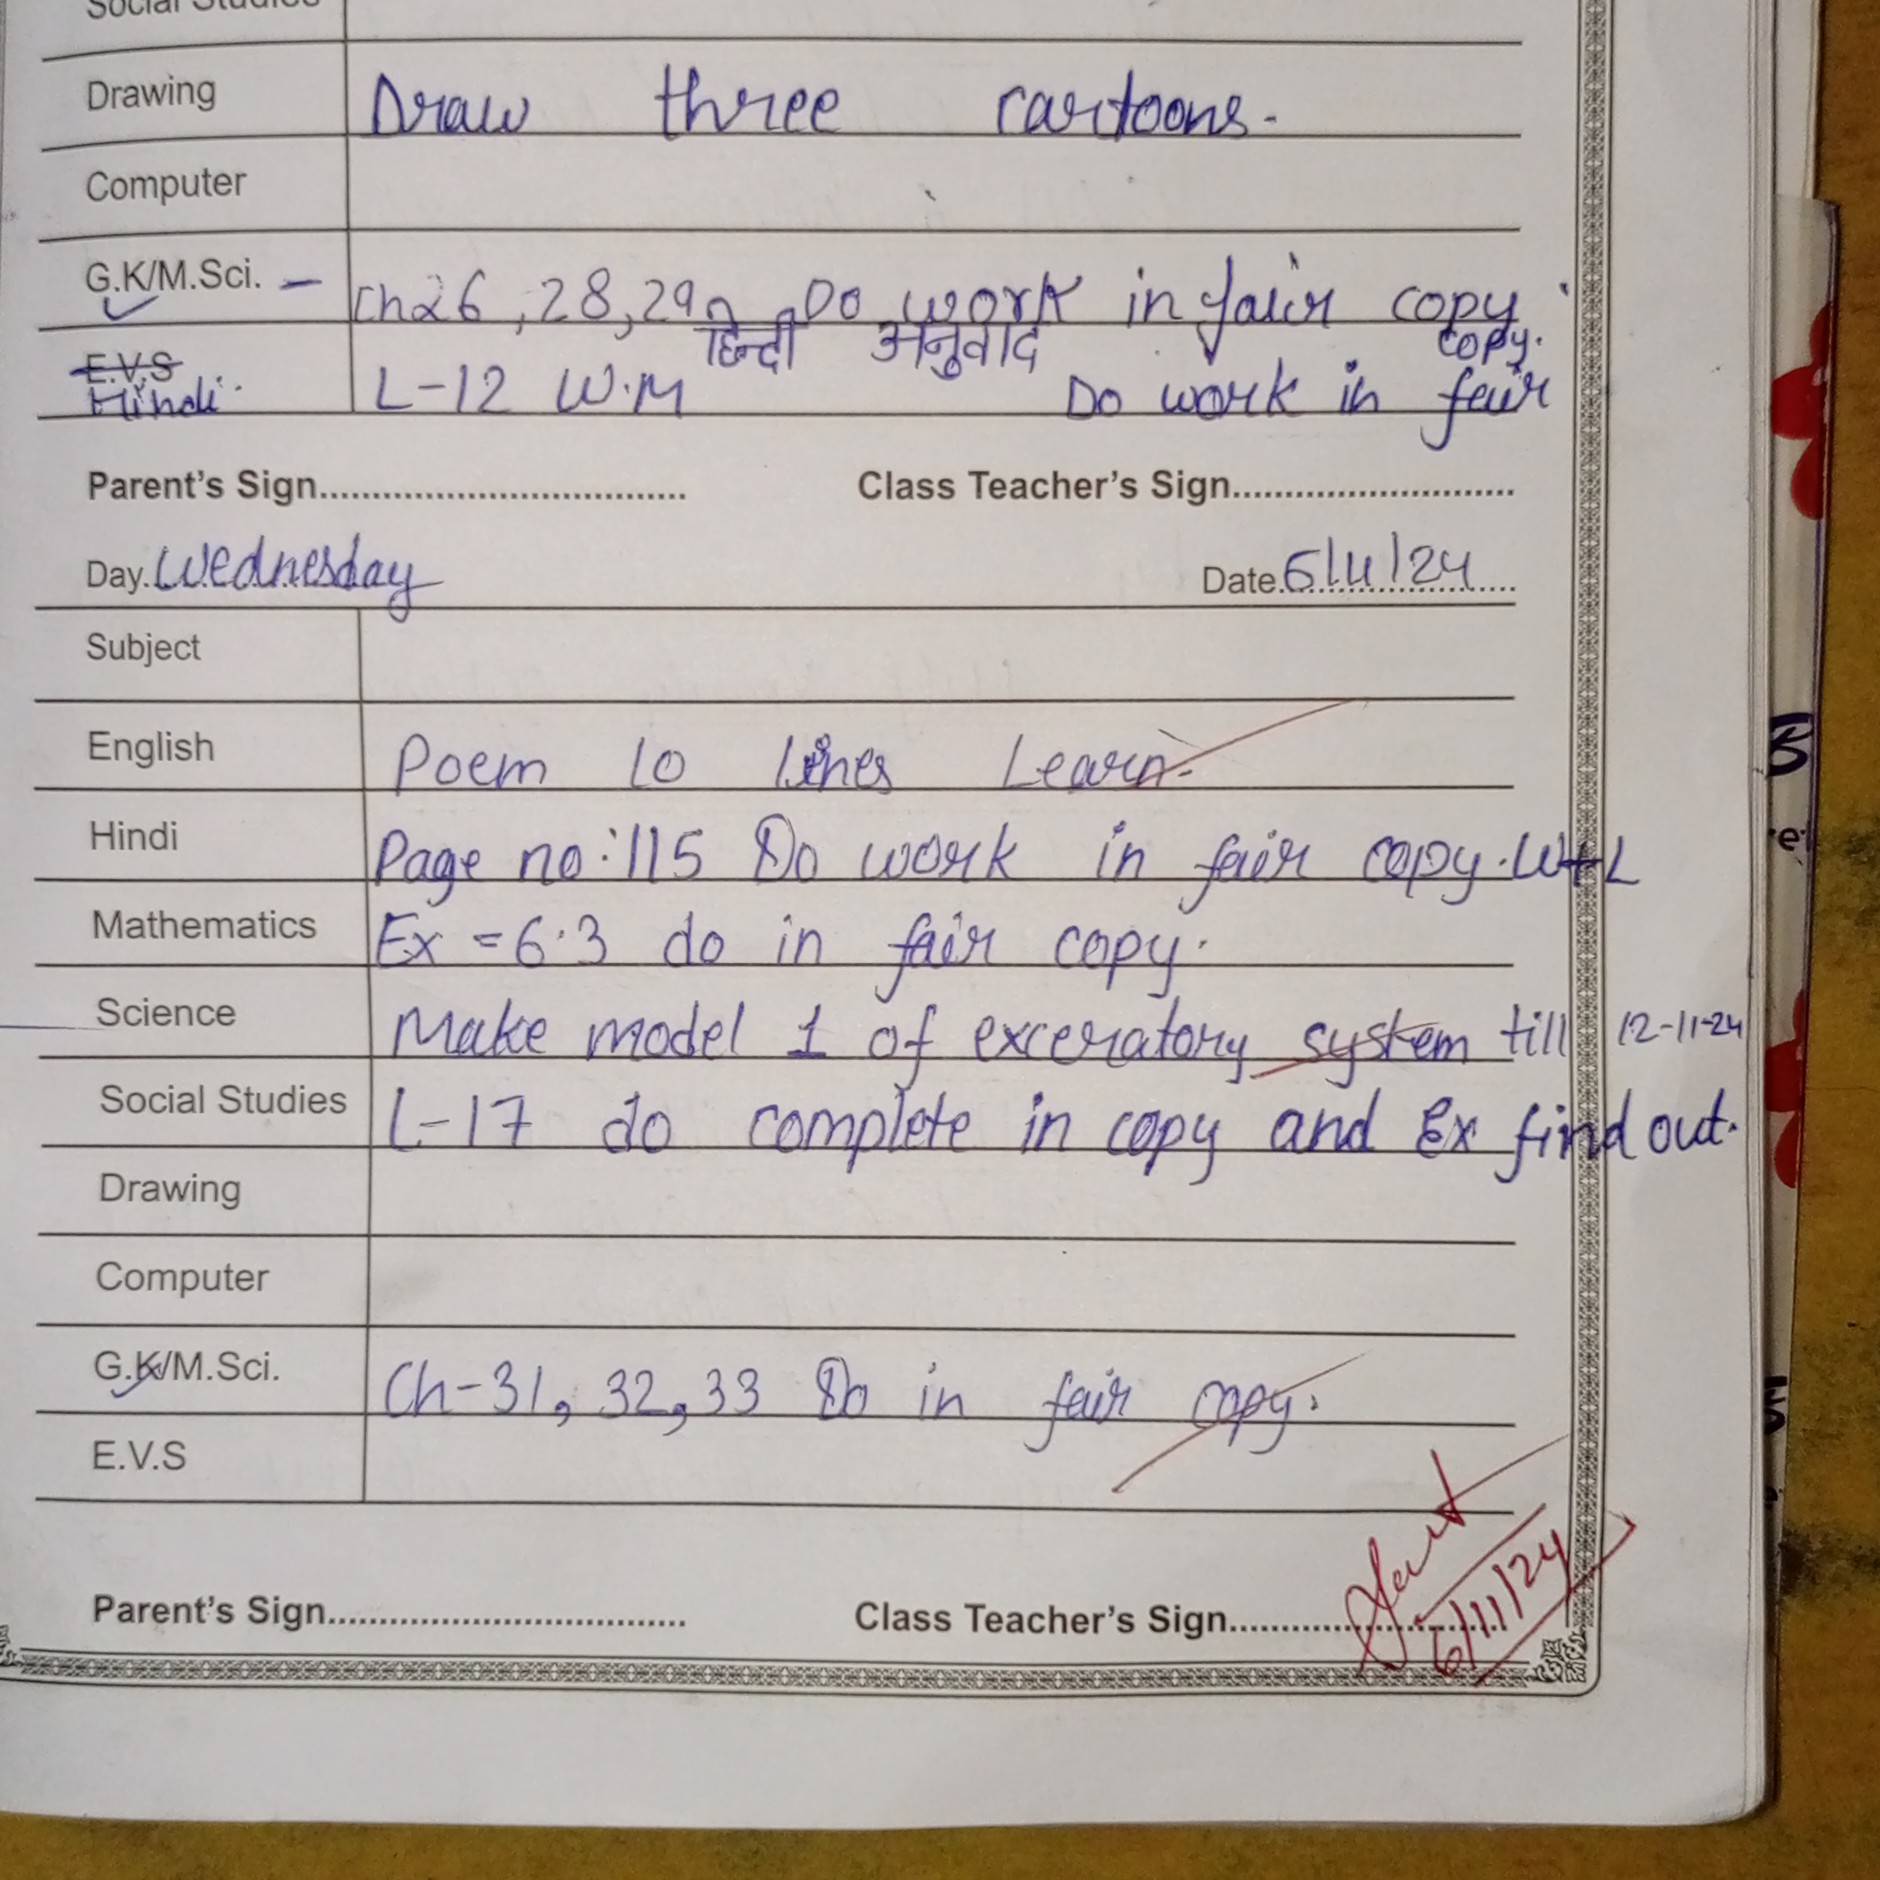 Social Studies
Drawing Draw three cartoons.
Computer
G.K/M.Sci. - Ch 26, 28, 29 Do work in fair copy.
हिन्दी अनुवाद copy.
E.V.S
Hindi. L-12 W.M Do work in fair
Parent's Sign.................................. Class Teacher's Sign...........................
Day. Wednesday Date. 6/11/24
Subject
English Poem 10 lines Learn.
Hindi Page no:115 Do work in fair copy. W+L
Mathematics Ex = 6.3 do in fair copy.
Science Make model 1 of exceratory system till 12-11-24
Social Studies L-17 do complete in copy and Ex find out.
Drawing
Computer
G.K/M.Sci. Ch-31, 32, 33 Do in fair copy.
E.V.S
Parent's Sign.................................. Class Teacher's Sign...........................
6/11/24